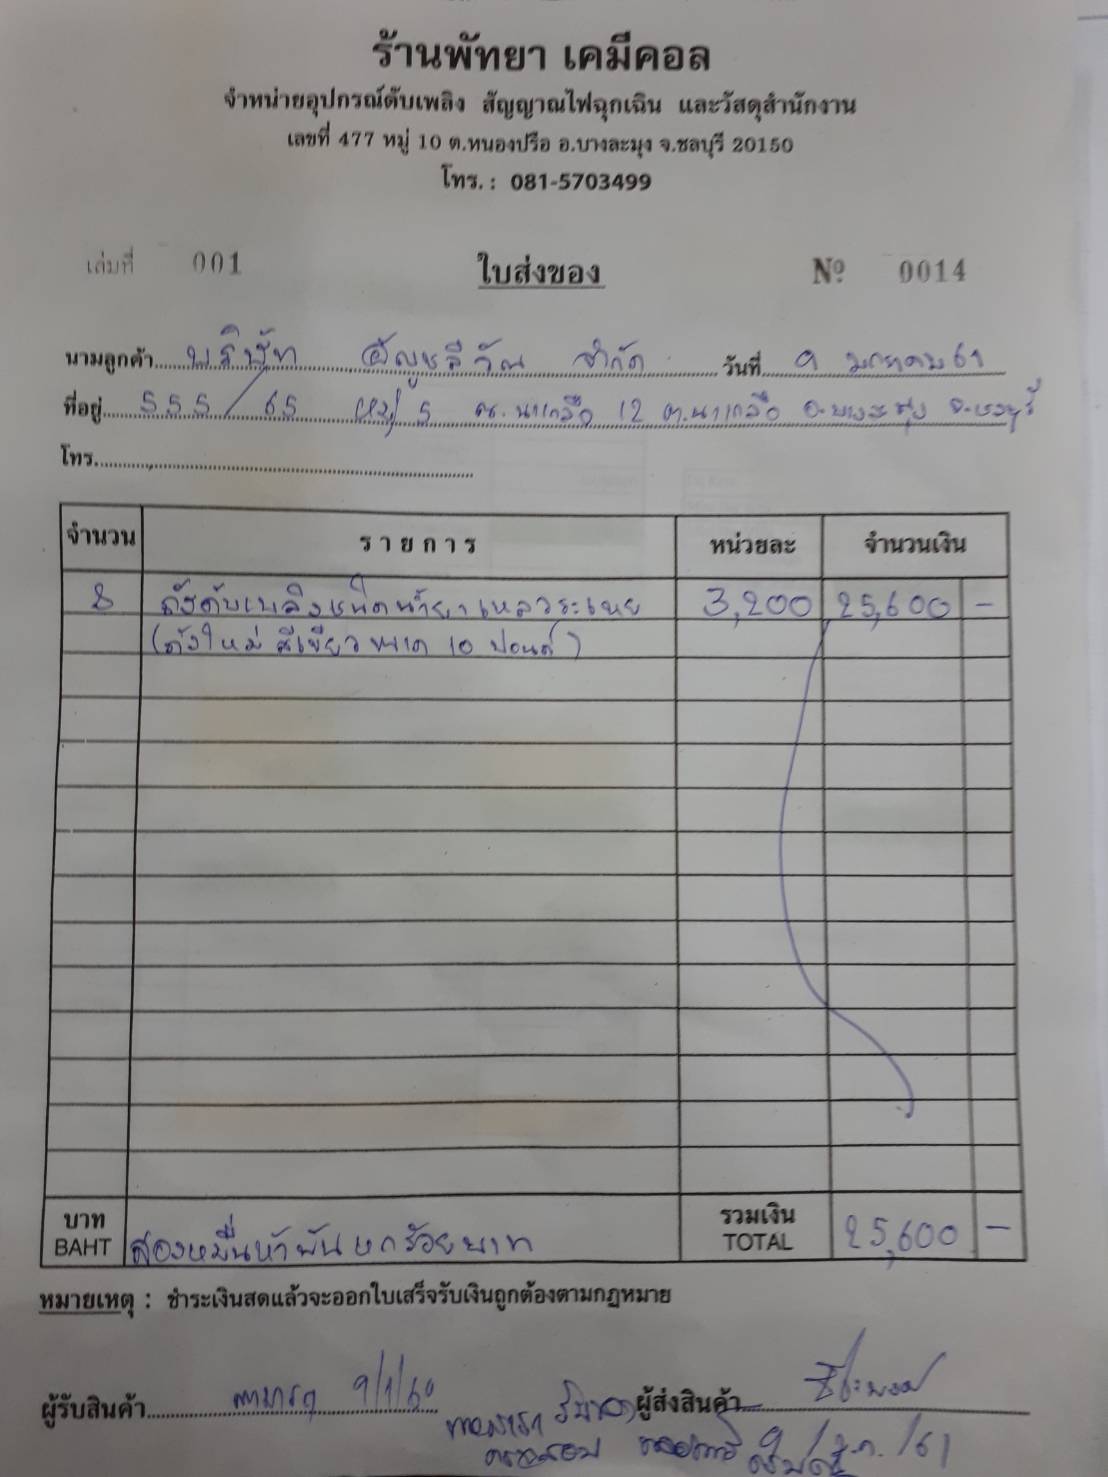 ร้านพัทยา เคมีคอล
จำหน่ายอุปกรณ์ดับเพลิง สัญญาณไฟฉุกเฉิน และวัสดุสำนักงาน
เลขที่ 477 หมู่ 10 ต.หนองปรือ อ.บางละมุง จ.ชลบุรี 20150
โทร. : 081-5703499
เล่มที่ 001 ใบส่งของ Nº 0014
นามลูกค้า บริษัท จำกัด วันที่ 9 มกราคม 61
ที่อยู่ 555/65 หมู่ 5 ซ.นาเกลือ 12 ต.นาเกลือ อ.บางละมุง จ.ชลบุรี
โทร.
จำนวน รายการ หน่วยละ จำนวนเงิน
8 ถังดับเพลิงชนิดน้ำยาเหลวระเหย 3,200 25,600 -
(ถังใหม่ สีเขียว ขนาด 10 ปอนด์)
บาท สองหมื่นห้าพันหกร้อยบาท รวมเงิน 25,600 -
BAHT TOTAL
หมายเหตุ : ชำระเงินสดแล้วจะออกใบเสร็จรับเงินถูกต้องตามกฎหมาย
ผู้รับสินค้า 9/1/60 ผู้ส่งสินค้า